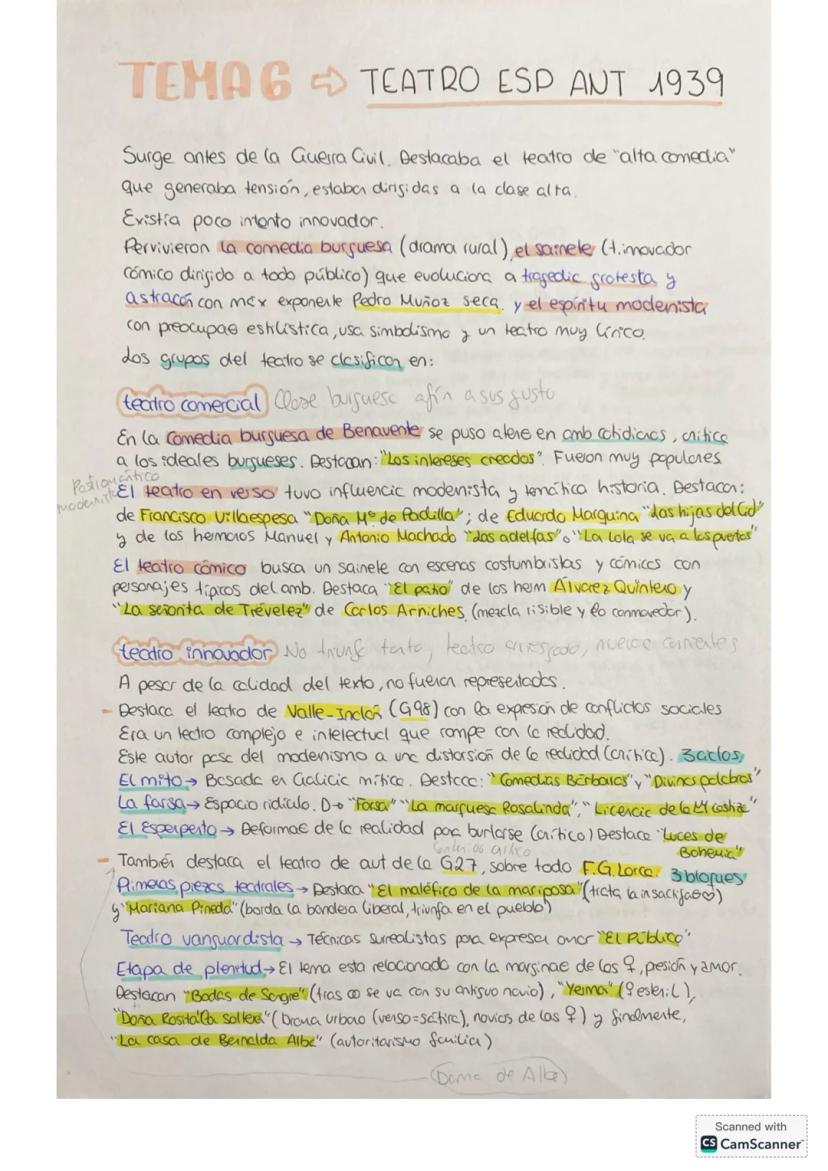 TEMA 6 ⇨ TEATRO ESP ANT 1939
Surge antes de la Guerra Civil. Destacaba el teatro de "alta comedia"
que generaba tensión, estaban dirigidas a la clase alta.
Existía poco intento innovador.
Pervivieron la comedia burguesa (drama rural), el sainete (t. innovador
cómico dirigido a todo público) que evoluciona a tragedic grotesta y
astracán con max exponente Pedro Muñoz seca, y el espíritu modernista
con preocupao estilística, usa simbolismo y un teatro muy lírico.
Los grupos del teatro se clasifican en:
teatro comercial Clase burguesa afín a sus gusto
En la comedia burguesa de Benavente se puso en amb cotidianos, critica
a los ideales burgueses. Destacan: "Los intereses creados". Fueron muy populares
Postromántico
modernista
El teatro en verso tuvo influencia modernista y temática historia. Destacan:
de Francisco Villaespesa "Doña Mª de Padilla"; de Eduardo Marquina "Las hijas del Cid"
y de los hermanos Manuel y Antonio Machado "Las adelfas" o "La Lola se va a los puertos"
El teatro cómico busca un sainete con escenas costumbristas y cómicas con
personajes típicos del amb. Destaca "El patio" de los herm Álvarez Quintero y
"La señorita de Trévelez" de Carlos Arniches (mezcla risible y lo conmovedor).
teatro innovador No triunfa tanto, teatro arriesgado, nuevas corrientes
A pesar de la calidad del texto, no fueron representados.
- Destaca el teatro de Valle-Inclán (G98) con la expresión de conflictos sociales
Era un teatro complejo e intelectual que rompe con la realidad.
Este autor pasa del modernismo a una distorsión de la realidad (crítica). 3 ciclos,
El mito → Basada en Galicia mítica. Destaca: "Comedias Bárbaras" y "Divinas palabras"
La farsa → Espacio ridículo. D→ "Farsa" "La marquesa Rosalinda", "Licencia de la
El Esperpento → Deformao de la realidad para burlarse (crítico) Destaca "Luces de
Bohemia"
- También destaca el teatro de aut de la G27, sobre todo F.G. Lorca. 3 bloques
Primeras piezas teatrales → Destaca "El maléfico de la mariposa" (trata la
y "Mariana Pineda" (borda la bandera liberal, triunfa en el pueblo)
Teatro vanguardista → Técnicas surrealistas para expresar amor "El Público"
Etapa de plenitud → El tema esta relacionado con la marginao de las ♀, presión y amor.
Destacan "Bodas de Sangre" (tras se va con su antiguo novio), "Yerma" (♀ esteril),
"Doña Rosita la soltera" (drama urbano (verso=sátira), novios de las ♀) y finalmente,
"La casa de Bernalda Alba" (autoritarismo familia)
(Dama de Alba)
Scanned with
CS CamScanner